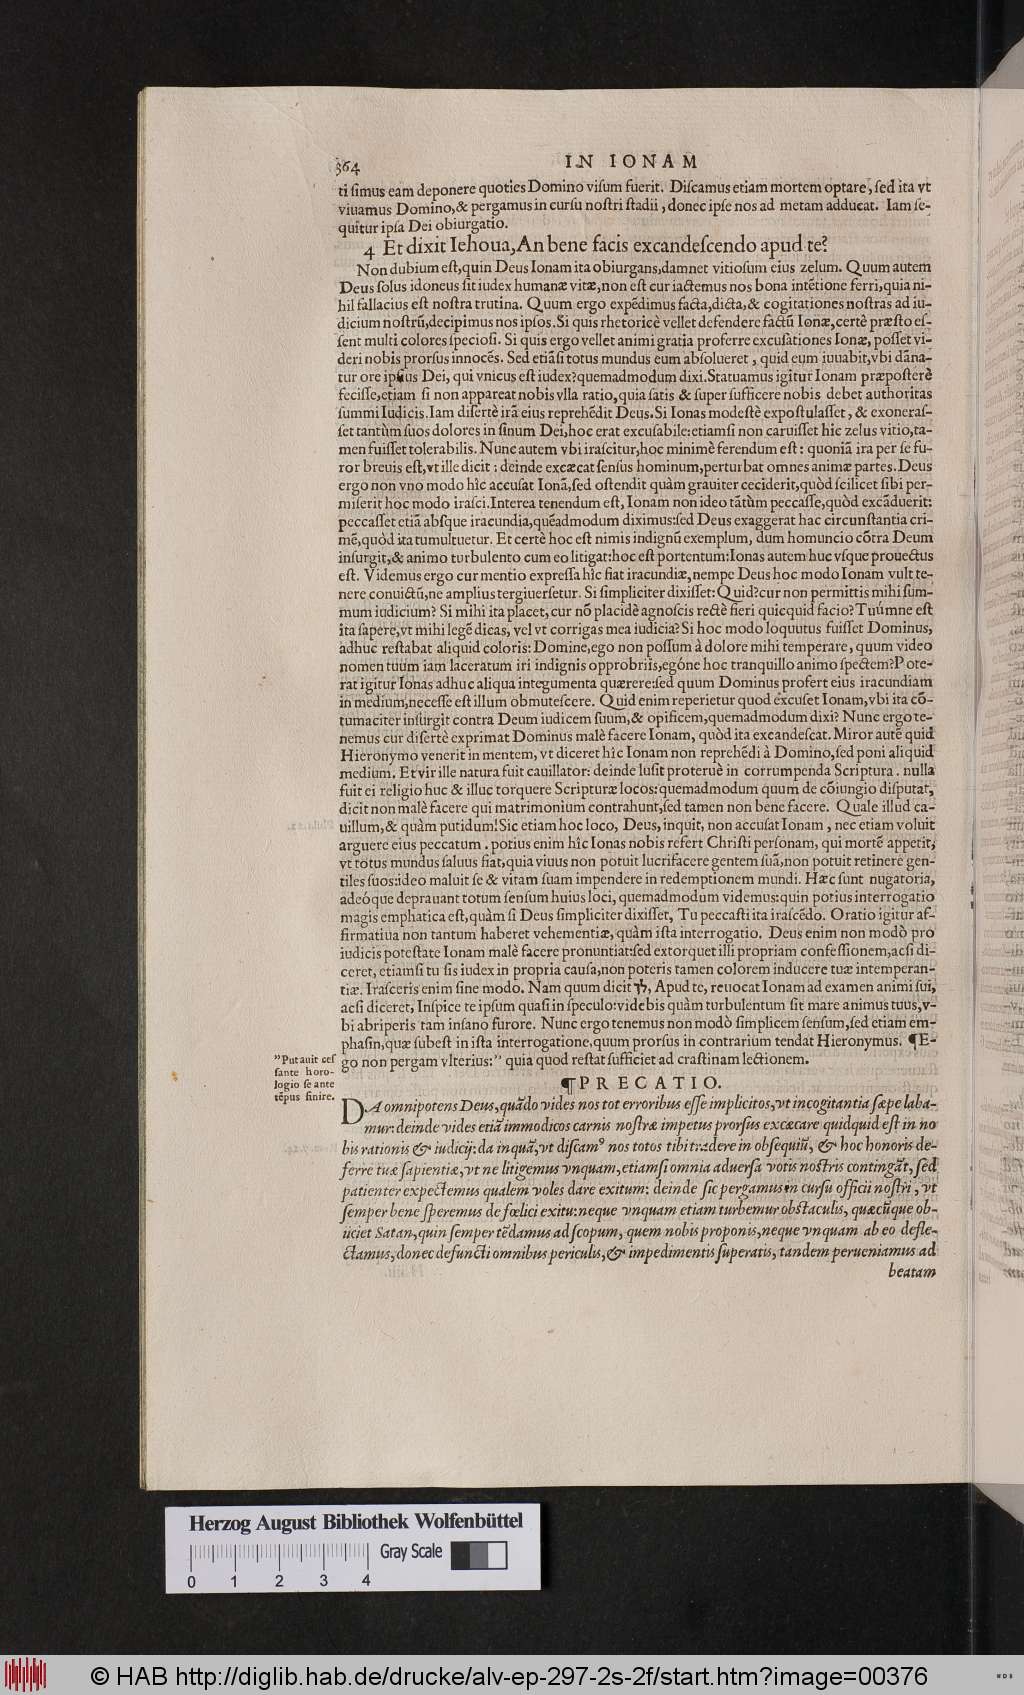 364
IN IONAM
ti ſimus eam deponere quoties Domino viſum fuerit. Diſcamus etiam mortem optare, ſed ita vt
viuamus Domino,& pergamus in curſu noſtri ſtadii, donec ipſe nos ad metam adducat. Iam ſe-
quitur ipſa Dei obiurgatio.
4 Et dixit Iehoua,An bene facis excandeſcendo apud te?
Non dubium eſt,quin Deus Ionam ita obiurgans,damnet vitioſum eius zelum. Quum autem
Deus ſolus idoneus ſit iudex humanæ vitæ,non eſt cur iactemus nos bona intētione ferri,quia ni-
hil fallacius eſt noſtra trutina. Quum ergo expēdimus facta,dicta,& cogitationes noſtras ad iu-
dicium noſtrū,decipimus nos ipſos.Si quis rhetoricè vellet defendere factū Ionæ,certè præſto eſ-
ſent multi colores ſpecioſi. Si quis ergo vellet animi gratia proferre excuſationes Ionæ, poſſet vi-
deri nobis prorſus innocēs. Sed etiāſi totus mundus eum abſolueret, quid eum iuuabit,vbi dāna-
tur ore ipſius Dei, qui vnicus eſt iudex?quemadmodum dixi.Statuamus igitur Ionam præpoſterè
feciſſe,etiam ſi non appareat nobis vlla ratio,quia ſatis & ſuper ſufficere nobis debet authoritas
ſummi Iudicis.Iam diſertè irā eius reprehēdit Deus.Si Ionas modeſtè expoſtulaſſet, & exoneraſ-
ſet tantùm ſuos dolores in ſinum Dei,hoc erat excuſabile:etiamſi non caruiſſet hic zelus vitio,ta-
men fuiſſet tolerabilis. Nunc autem vbi iraſcitur,hoc minimè ferendum eſt: quoniā ira per ſe fu-
ror breuis eſt,vt ille dicit: deinde excæcat ſenſus hominum,perturbat omnes animæ partes.Deus
ergo non vno modo hìc accuſat Ionā,ſed oſtendit quàm grauiter ceciderit,quòd ſcilicet ſibi per-
miſerit hoc modo iraſci.Interea tenendum eſt, Ionam non ideo tātùm peccaſſe,quòd excāduerit:
peccaſſet etiā abſque iracundia,quēadmodum diximus:ſed Deus exaggerat hac circunſtantia cri-
mē,quòd ita tumultuetur. Et certè hoc eſt nimis indignū exemplum, dum homuncio cōtra Deum
inſurgit,& animo turbulento cum eo litigat:hoc eſt portentum:Ionas autem huc vſque prouectus
eſt. Videmus ergo cur mentio expreſſa hìc fiat iracundiæ,nempe Deus hoc modo Ionam vult te-
nere conuictū,ne amplius tergiuerſetur. Si ſimpliciter dixiſſet:Quid?cur non permittis mihi ſum-
mum iudicium? Si mihi ita placet,cur nō placidè agnoſcis rectè fieri quicquid facio?Tuúmne eſt
ita ſapere,vt mihi legē dicas, vel vt corrigas mea iudicia?Si hoc modo loquutus fuiſſet Dominus,
adhuc reſtabat aliquid coloris: Domine,ego non poſſum à dolore mihi temperare, quum video
nomen tuum iam laceratum iri indignis opprobriis,egóne hoc tranquillo animo ſpectem?Pote-
rat igitur Ionas adhuc aliqua integumenta quærere:ſed quum Dominus profert eius iracundiam
in medium,neceſſe eſt illum obmuteſcere. Quid enim reperietur quod excuſet Ionam,vbi ita cō-
tumaciter inſurgit contra Deum iudicem ſuum,& opificem,quemadmodum dixi? Nunc ergo te-
nemus cur diſertè exprimat Dominus malè facere Ionam, quòd ita excandeſcat. Miror autē quid
Hieronymo venerit in mentem, vt diceret hìc Ionam non reprehēdi à Domino,ſed poni aliquid
medium. Et vir ille natura fuit cauillator: deinde luſit proteruè in corrumpenda Scriptura. nulla
fuit ei religio huc & illuc torquere Scripturæ locos:quemadmodum quum de cōiungio diſputat,
dicit non malè facere qui matrimonium contrahunt,ſed tamen non bene facere. Quale illud ca-
uillum,& quàm putidum!Sic etiam hoc loco, Deus, inquit, non accuſat Ionam, nec etiam voluit
arguere eius peccatum. potius enim hìc Ionas nobis refert Chriſti perſonam, qui mortē appetit,
vt totus mundus ſaluus fiat,quia viuus non potuit lucrifacere gentem ſuā,non potuit retinere gen-
tiles ſuos:ideo maluit ſe & vitam ſuam impendere in redemptionem mundi. Hæc ſunt nugatoria,
adeóque deprauant totum ſenſum huius loci, quemadmodum videmus:quin potius interrogatio
magis emphatica eſt,quàm ſi Deus ſimpliciter dixiſſet, Tu peccaſti ita iraſcēdo. Oratio igitur af-
firmatiua non tantum haberet vehementiæ,quàm iſta interrogatio. Deus enim non modò pro
iudicis poteſtate Ionam malè facere pronuntiat:ſed extorquet illi propriam confeſſionem,acſi di-
ceret, etiamſi tu ſis iudex in propria cauſa,non poteris tamen colorem inducere tuæ intemperan-
tiæ. Iraſceris enim ſine modo. Nam quum dicit לך, Apud te, reuocat Ionam ad examen animi ſui,
acſi diceret, Inſpice te ipſum quaſi in ſpeculo:videbis quàm turbulentum ſit mare animus tuus,v-
bi abriperis tam inſano furore. Nunc ergo tenemus non modò ſimplicem ſenſum,ſed etiam em-
phaſin,quæ ſubeſt in iſta interrogatione,quum prorſus in contrarium tendat Hieronymus. ¶E-
go non pergam vlterius:” quia quod reſtat ſufficiet ad craſtinam lectionem.
”Putauit ceſ
ſante horo-
logio ſe ante
tēpus finire.
¶PRECATIO.
DA omnipotens Deus,quādo vides nos tot erroribus eſſe implicitos,vt incogitantia ſæpe laba-
mur:deinde vides etiā immodicos carnis noſtræ impetus prorſus excæcare quidquid eſt in no
bis rationis & iudicij:da inquā,vt diſcamꝰ nos totos tibi tradere in obſequiū, & hoc honoris de-
ferre tuæ ſapientiæ,vt ne litigemus vnquam,etiamſi omnia aduerſa votis noſtris contingāt, ſed
patienter expectemus qualem voles dare exitum: deinde ſic pergamus in curſu officii noſtri, vt
ſemper bene ſperemus de fœlici exitu:neque vnquam etiam turbemur obſtaculis, quæcūque ob-
iiciet Satan,quin ſemper tēdamus ad ſcopum, quem nobis proponis,neque vnquam ab eo defle-
ctamus,donec defuncti omnibus periculis,& impedimentis ſuperatis, tandem perueniamus ad
beatam
Herzog August Bibliothek Wolfenbüttel
Gray Scale
0 1 2 3 4
© HAB http://diglib.hab.de/drucke/alv-ep-297-2s-2f/start.htm?image=00376